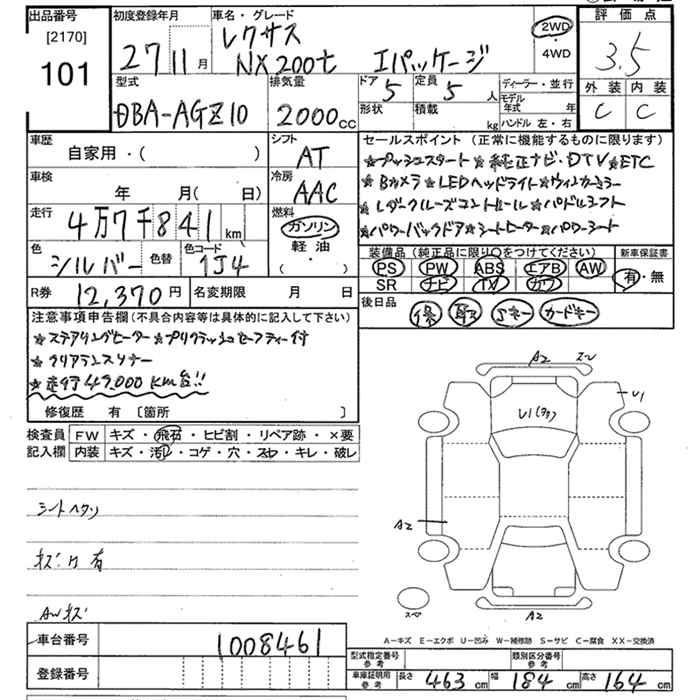 出品番号 初度登録年月 車名・グレード 評価点
[2170] レクサス 2WD
101 27 11月 NX200t Iパッケージ ・4WD 3.5
型式 排気量 ドア 定員 ディーラー・並行 外装 内装
DBA-AGZ10 2000cc 5 5人 モデル年式 年 C C
形状 積載 kg ハンドル 左・右
車歴 シフト セールスポイント (正常に機能するものに限ります)
自家用・( ) AT ★プッシュスタート★純正ナビ・DTV★ETC
車検 冷房 ★Bカメラ★LEDヘッドライト★ウィンカーミラー
年 月(日) AAC ★レーダークルーズコントロール★パドルシフト
走行 燃料 ★パワーバックドア★シートヒーター★パワーシート
4万7千841km ガソリン
色 色替 色コード 軽油・ 装備品 (純正品に限り○をつけてください) 新車保証書
シルバー 1J4 ( ・ ) PS PW ABS エアB AW 有・無
SR ナビ TV カワ
R券 12,370円 名変期限 月 日 後日品 保 取 Sキー カードキー
注意事項申告欄 (不具合内容等は具体的に記入して下さい)
★ステアリングヒーター★プリクラッシュセーフティー付
★クリアランスソナー
★走行49,000KM台!!
修復歴 有 [箇所 ]
A2
U1
U1
検査員 FW キズ・飛石・ヒビ割・リペア跡・×要
記入欄 内装 キズ・汚れ・コゲ・穴・スレ・キレ・破レ
シートヘタリ
A2
キズ凹有
AWキズ
スペア A2
A-キズ E-エクボ U-凹み W-補修跡 S-サビ C-腐食 XX-交換済
車台番号 1008461
型式指定番号 参考 類別区分番号 参考
登録番号 車庫証明用 参考 長さ 463cm 幅 184cm 高さ 164cm